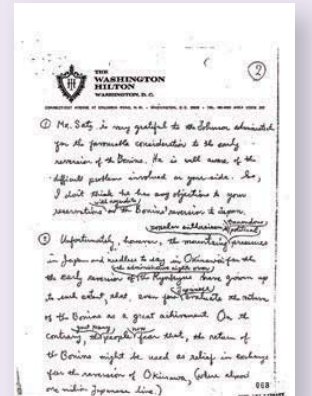 ②
THE
WASHINGTON
HILTON
WASHINGTON, D. C.
① Mr. Sato is very grateful to the Johnson
for the favourable consideration to the early
reversion of the Bonins. He is well aware of the
difficult problems involved on your side. So,
I don't think he has any objections to your
with regard to
reservations on the Bonins' reversion to Japan.
popular enthusiasm
political
② Unfortunately, however, the mounting pressures
in Japan and needless to say in Okinawa for the
the administrative rights over
the early reversion of the Ryukyus have grown up
Japanese
to such extent, that, even few evaluate the return
of the Bonins as a great achievement. On the
good many
now
contrary, people fear that, the return of
the Bonins might be used as relief in exchange
for the reversion of Okinawa, (where almost
one million Japanese live.)
068